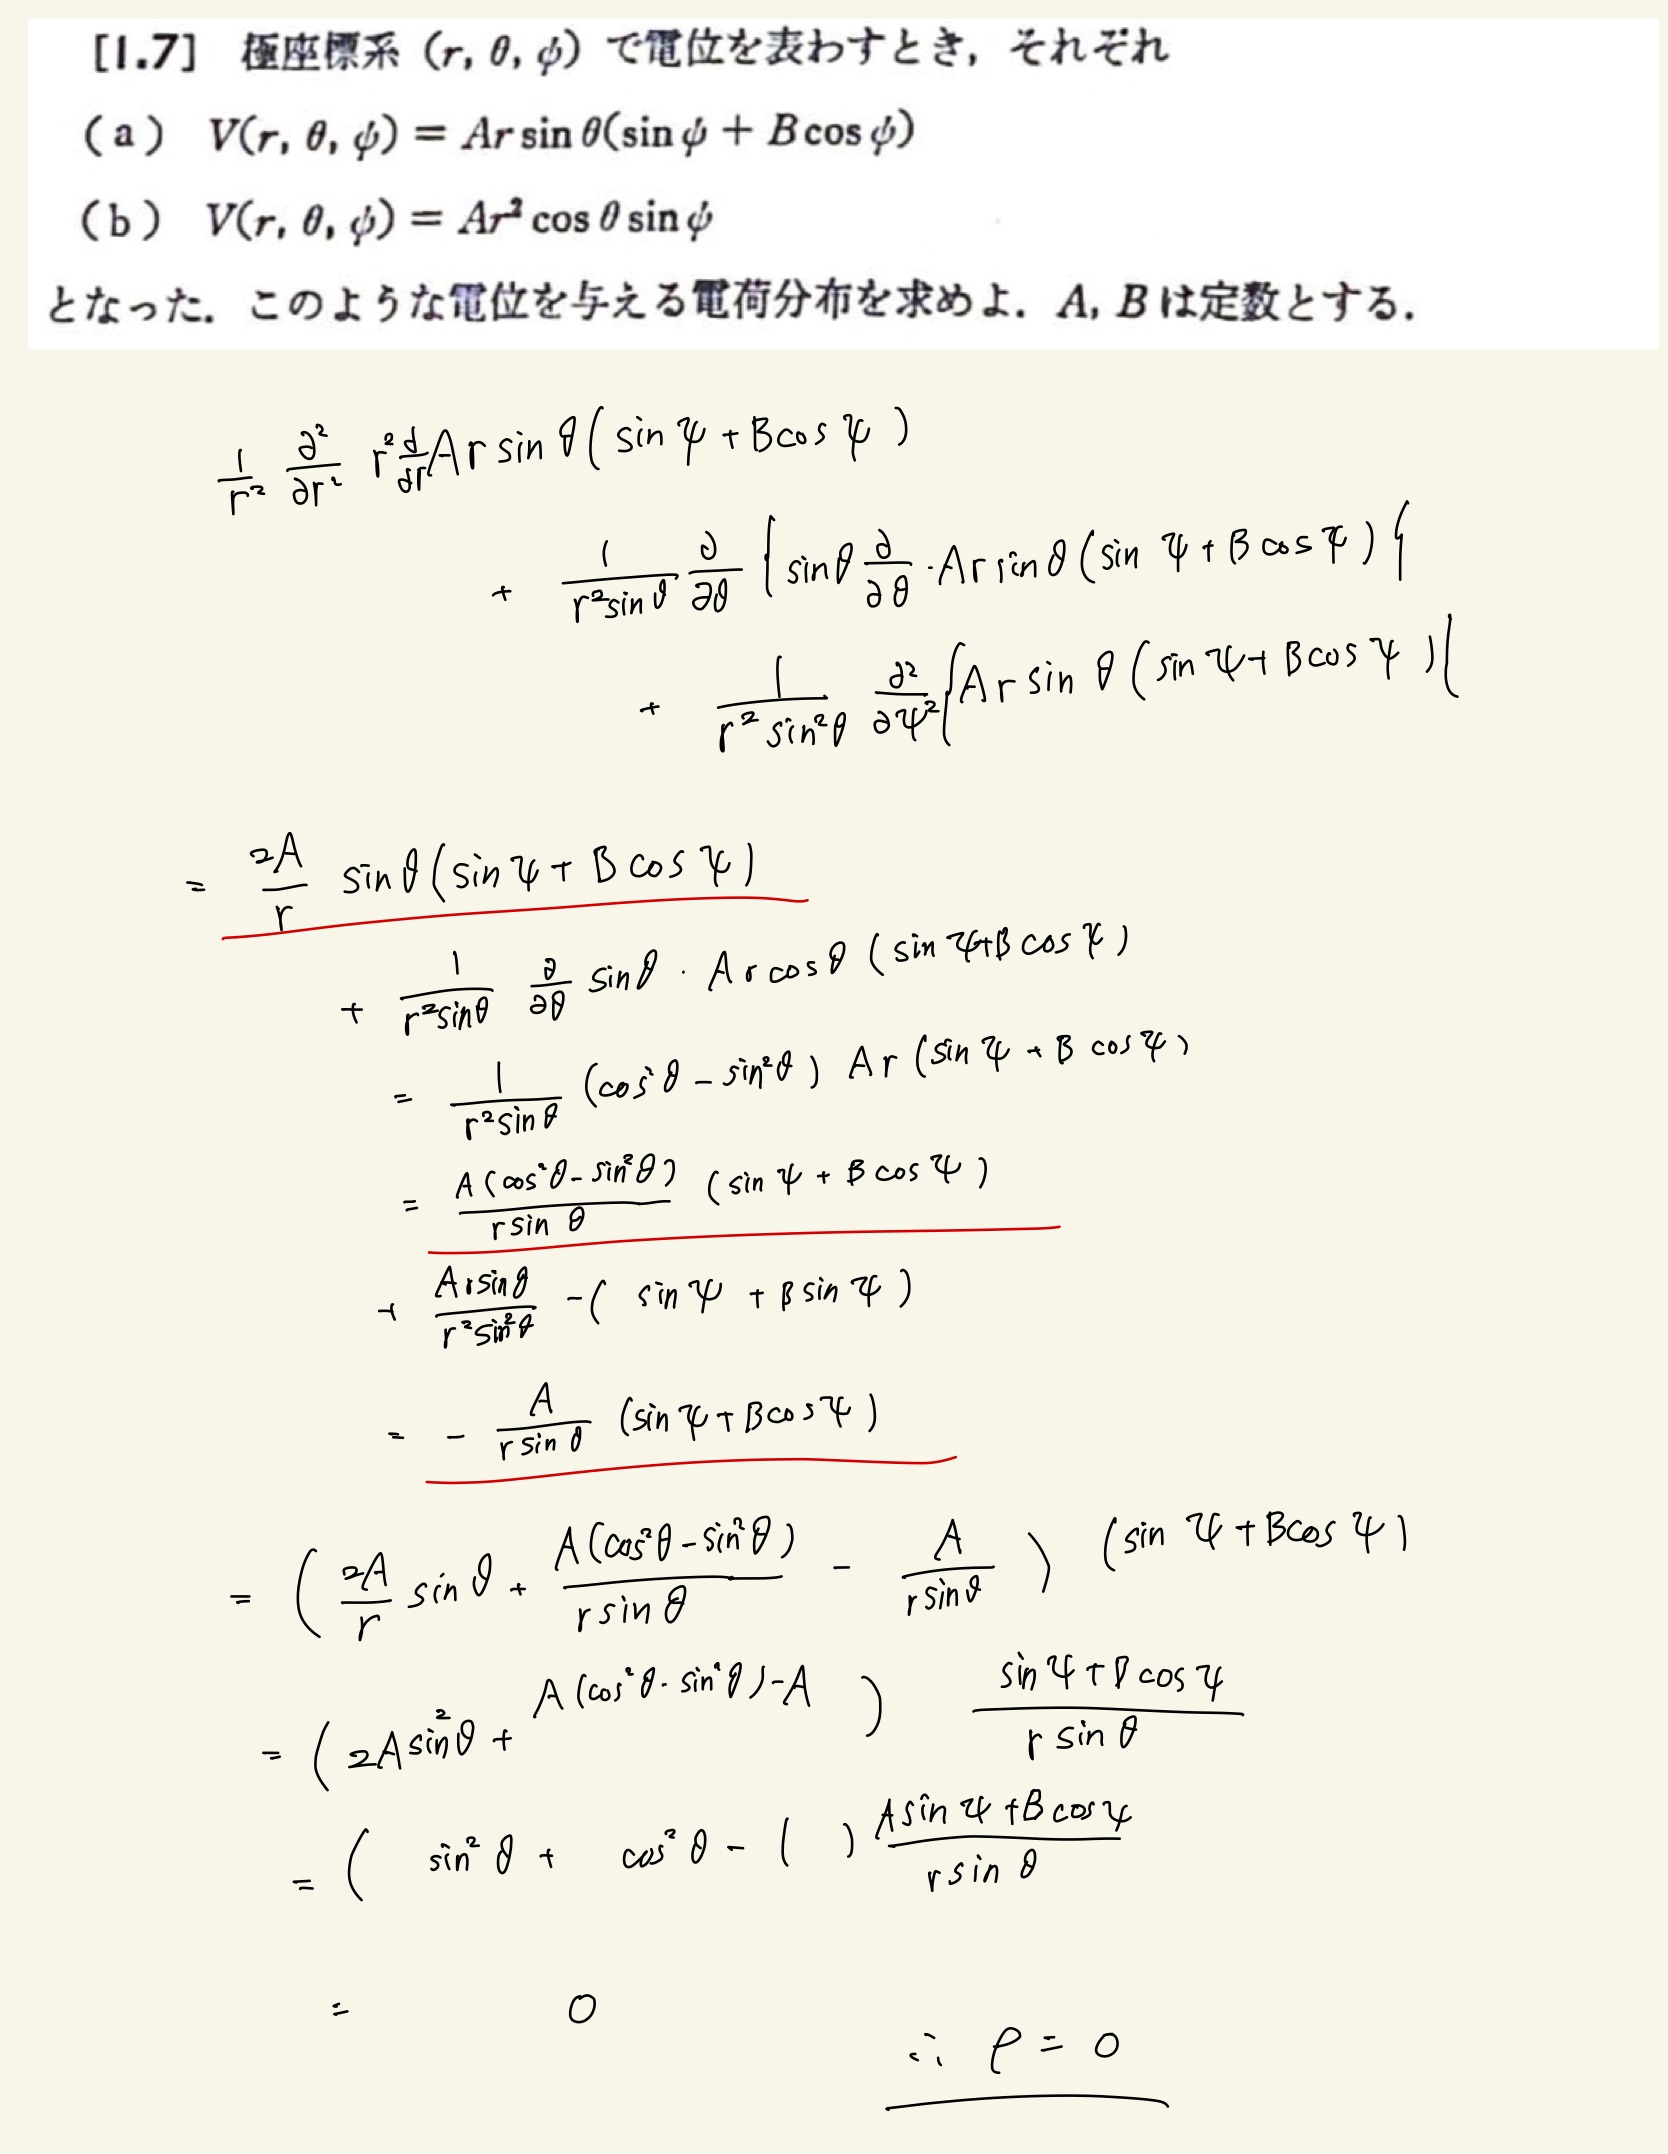 [1.7] 極座標系 (r, θ, ψ) で電位を表わすとき, それぞれ
(a) V(r, θ, ψ) = Ar sin θ(sin ψ + B cos ψ)
(b) V(r, θ, ψ) = Ar² cos θ sin ψ
となった. このような電位を与える電荷分布を求めよ. A, B は定数とする.
1/r² ∂²/∂r² r² ∂/∂r Ar sin θ (sin ψ + B cos ψ)
+ 1/(r² sin θ) ∂/∂θ { sin θ ∂/∂θ · Ar sin θ (sin ψ + B cos ψ) }
+ 1/(r² sin² θ) ∂²/∂ψ² { Ar sin θ (sin ψ + B cos ψ) }
= 2A/r sin θ (sin ψ + B cos ψ)
+ 1/(r² sin θ) ∂/∂θ sin θ · Ar cos θ (sin ψ + B cos ψ)
= 1/(r² sin θ) (cos² θ - sin² θ) Ar (sin ψ + B cos ψ)
= A(cos² θ - sin² θ)/(r sin θ) (sin ψ + B cos ψ)
+ Ar sin θ/(r² sin² θ) -( sin ψ + B sin ψ)
= - A/(r sin θ) (sin ψ + B cos ψ)
= ( 2A/r sin θ + A(cos² θ - sin² θ)/(r sin θ) - A/(r sin θ) ) (sin ψ + B cos ψ)
= ( 2A sin² θ + A(cos² θ - sin² θ) - A ) (sin ψ + B cos ψ)/(r sin θ)
= ( sin² θ + cos² θ - 1 ) (A sin ψ + B cos ψ)/(r sin θ)
= 0
∴ ρ = 0